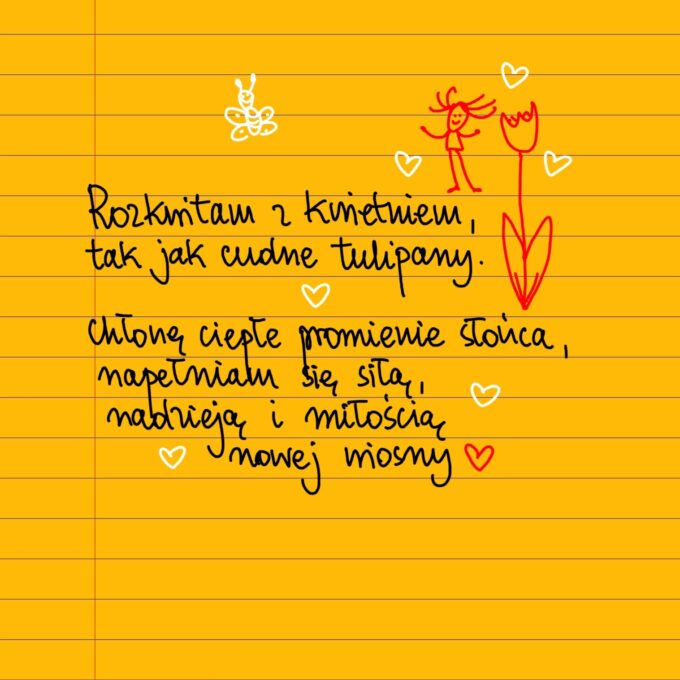 Rozkwitam z kwietniem,
tak jak cudne tulipany.
Chłonę ciepłe promienie słońca,
napełniam się siłą,
nadzieją i miłością
nowej wiosny